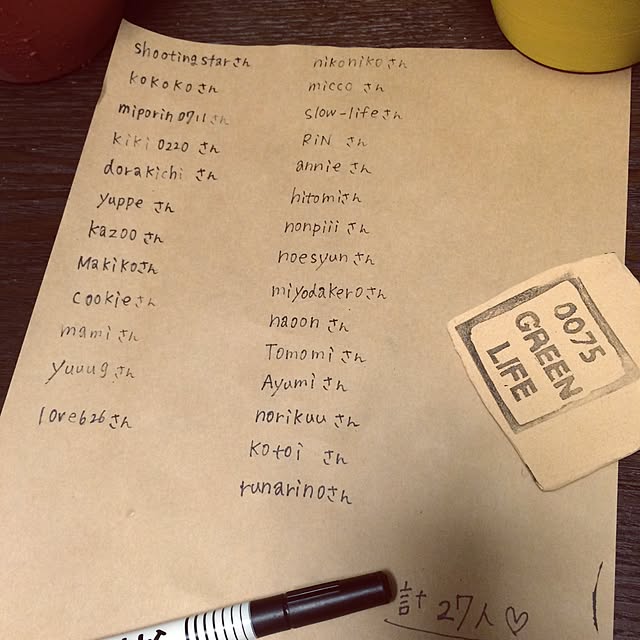 shootingstarさん
kokokoさん
miporin0711さん
kiki0220さん
dorakichiさん
yuppeさん
kazooさん
Makikoさん
cookieさん
mamiさん
yuuugさん
love626さん
nikonikoさん
miccoさん
slow-lifeさん
RiNさん
annieさん
hitomiさん
nonpiiiさん
noesyunさん
miyodakeroさん
naoonさん
Tomomiさん
Ayumiさん
norikuuさん
kotoiさん
runarinoさん
計27人♡
0075
GREEN
LIFE